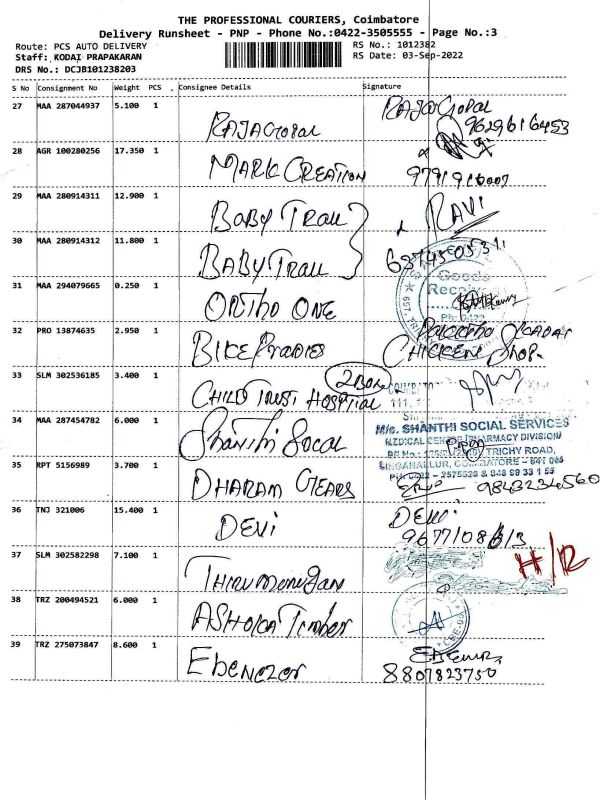 THE PROFESSIONAL COURIERS, Coimbatore
Delivery Runsheet - PNP - Phone No.:0422-3505555 - Page No.:3
Route: PCS AUTO DELIVERY RS No.: 1012382
Staff: KODAI PRAPAKARAN RS Date: 03-Sep-2022
DRS No.: DCJB101238203
S No Consignment No Weight PCS . Consignee Details Signature
27 MAA 287044937 5.100 1 RAJAGOPAL RAJAGOPAL
9629616453
28 AGR 100280256 17.350 1 MARK CREATION
29 MAA 280914311 12.900 1 BABY TRAIL RAVI
30 MAA 280914312 11.800 1 BABY TRAIL
31 MAA 294079665 0.250 1 ORTHO ONE Goods
32 PRO 13874635 2.950 1 CHICKEN SHOP
33 SLM 302536185 3.400 1 CHILD TRUST HOSPITAL 2 BOX
34 MAA 287454782 6.000 1 Shanthi Socal
M/s. SHANTHI SOCIAL SERVICES
MEDICAL CENTRE (PHARMACY DIVISION)
TRICHY ROAD,
SINGANALLUR, COIMBATORE - 641 005
35 RPT 5156989 3.700 1 DHARAM GEARS 9843234560
36 TNJ 321006 15.400 1 DEVI DEVI
37 SLM 302582298 7.100 1 THIRUMURUGAN H/R
38 TRZ 200494521 6.000 1 ASHOKA Timber
39 TRZ 275073847 8.600 1 EBENEZOR
8807823750